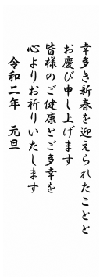 幸多き新春を迎えられたことと
お慶び申し上げます
皆様のご健康とご多幸を
心よりお祈りいたします
令和二年 元旦